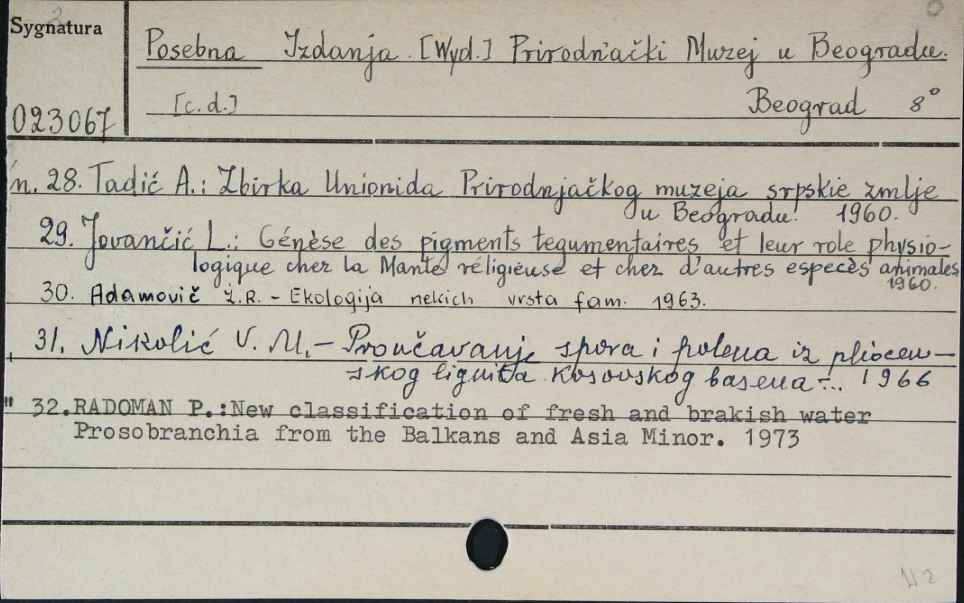 Sygnatura
Posebna Izdanja. [Wyd.] Prirodnački Muzej u Beogradu.
[c.d.] Beograd 8°
023067
n. 28. Tadić A.: Zbirka Unionida Prirodnjačkog muzeja srpskie zmlje
u Beogradu. 1960.
29. Jovančić L.: Génèse des pigments tegumentaires et leur role physio-
logique cher la Mante réligieuse et cher d'autres especès animales
1960.
30. Adamovič Ž.R. - Ekologija nekich vrsta fam. 1963.
31. Nikolić V. M. - Proučavanje spora i polena iz pliocen-
skog lignita Kosovskog basena -.. 1966
" 32.RADOMAN P.:New classification of fresh and brakish water
Prosobranchia from the Balkans and Asia Minor. 1973